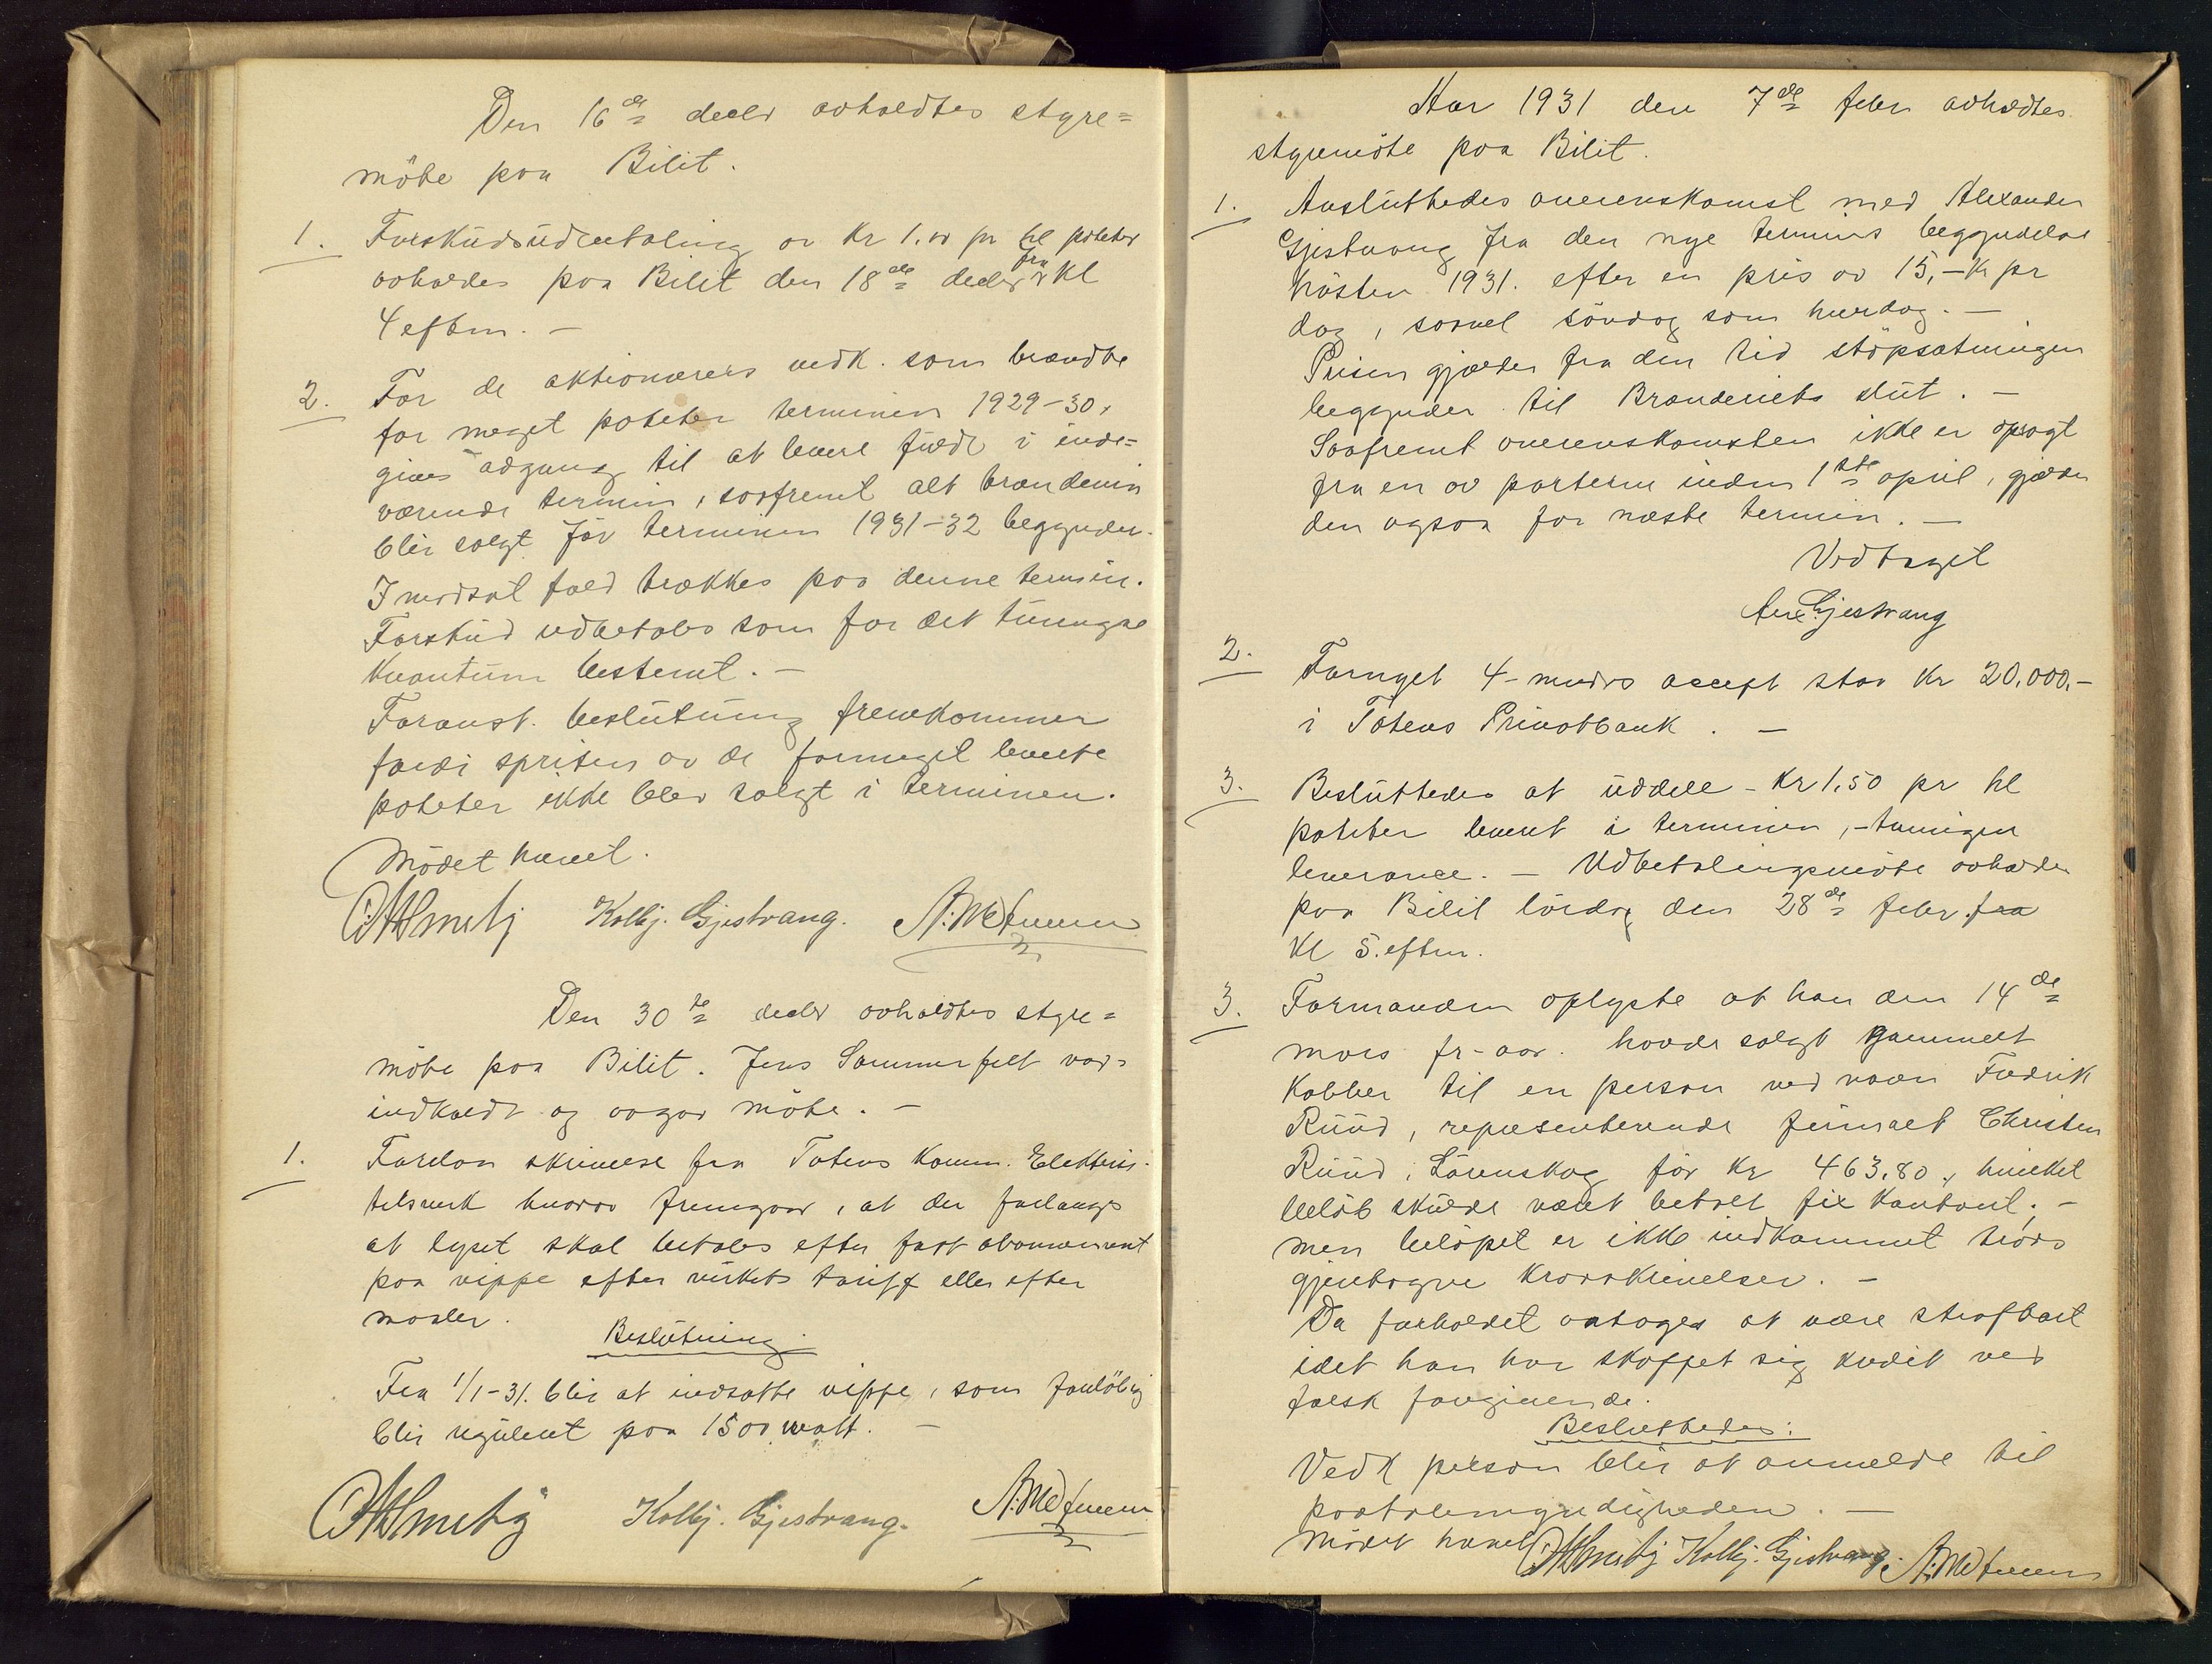 Den 16de decbr avholdtes styre=
möte paa Bilit.
1. Forskudsudbetaling av Kr 1.00 pr hl poteter
avholdes paa Bilit den 18de decbr fra Kl
4 eftm. –
2. For de aktionærers vedk. som brændte
for meget poteter terminen 1929-30,
gives adgang til at levere fuldt i inde=
værende termin, saafremt alt brændevin
blir solgt før terminen 1931-32 begynder.
I modsat fald trækkes paa denne termin.
Forskud udbetales som for det tvungne
kvantum bestemt. –
Foranst. beslutning fremkommer
fordi spriten av de formeget leverte
poteter ikke blev solgt i terminen.
Mödet hævet.
Kolbj. Gjestvang.
Den 30te decbr avholdtes styre=
möte paa Bilit. Jens Sommerfelt var
indkaldt og avgav möte. –
1. Forelaa skrivelse fra Totens Komm. Elektrisi-
tetsverk hvorav fremgaar, at der forlanges
at lyset skal betales efter fast abonnement
paa vippe efter verkets tariff eller efter
maaler.
Beslutning.
Fra 1/1-31. blir at indsætte vippe, som forlöbig
blir regulert paa 1500 watt. –
Kolbj. Gjestvang.
Aar 1931 den 7de febr avholdtes
styremöte paa Bilit.
1. Avsluttedes overenskomst med Alexander
Gjestvang fra den nye termins begyndelse
hösten 1931. efter en pris av 15,- Kr pr
dag, saavel söndag som hverdag. –
Prisen gjælder fra den tid stöpsætningen
begynder til Brænderiets slut. –
Saafremt overenskomsten ikke er opsagt
fra en av parterne inden 1ste april, gjælder
den ogsaa for næste termin. –
Vedtaget
Alex Gjestvang
2. Fornyet 4-mndrs accept stor Kr 20.000,-
i Totens Privatbank. –
3. Besluttedes at uddele – Kr 1,50 pr hl
poteter levert i terminen, – tvungen
leverance. – Udbetalingsmöte avholdes
paa Bilit lördag den 28de febr. fra
Kl 5. eftm.
3. Formanden oplyste at han den 14de
mars fr-aar. havde solgt gammelt
kobber til en person ved navn Fredrik
Ruud, representerende firmaet Christen
Ruud, Lörenskog for Kr 463.80, hvilket
belöb skulde været betalt pr kontant; –
men belöpet er ikke indkommet trods
gjentagne kravskrivelser. –
Da forholdet antages at være strafbart
idet han har skaffet sig kredit ved
falsk foregivende.
Besluttedes:
Vedk person blir at anmelde til
paatalemyndigheden. –
Mödet hævet
Kolbj. Gjestvang.